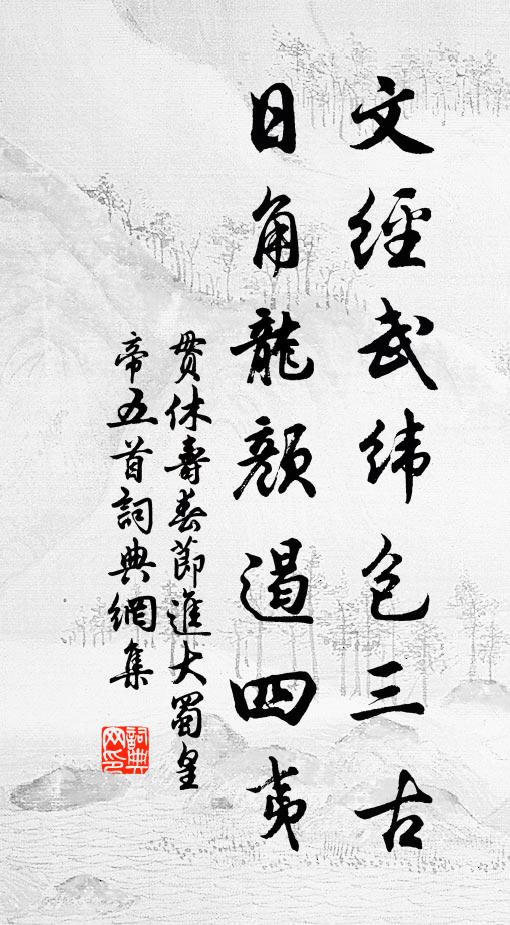 文經武緯包三古
日角龍顏遏四夷
貫休壽春節進大蜀皇
帝五首詞典網集
詞典網印